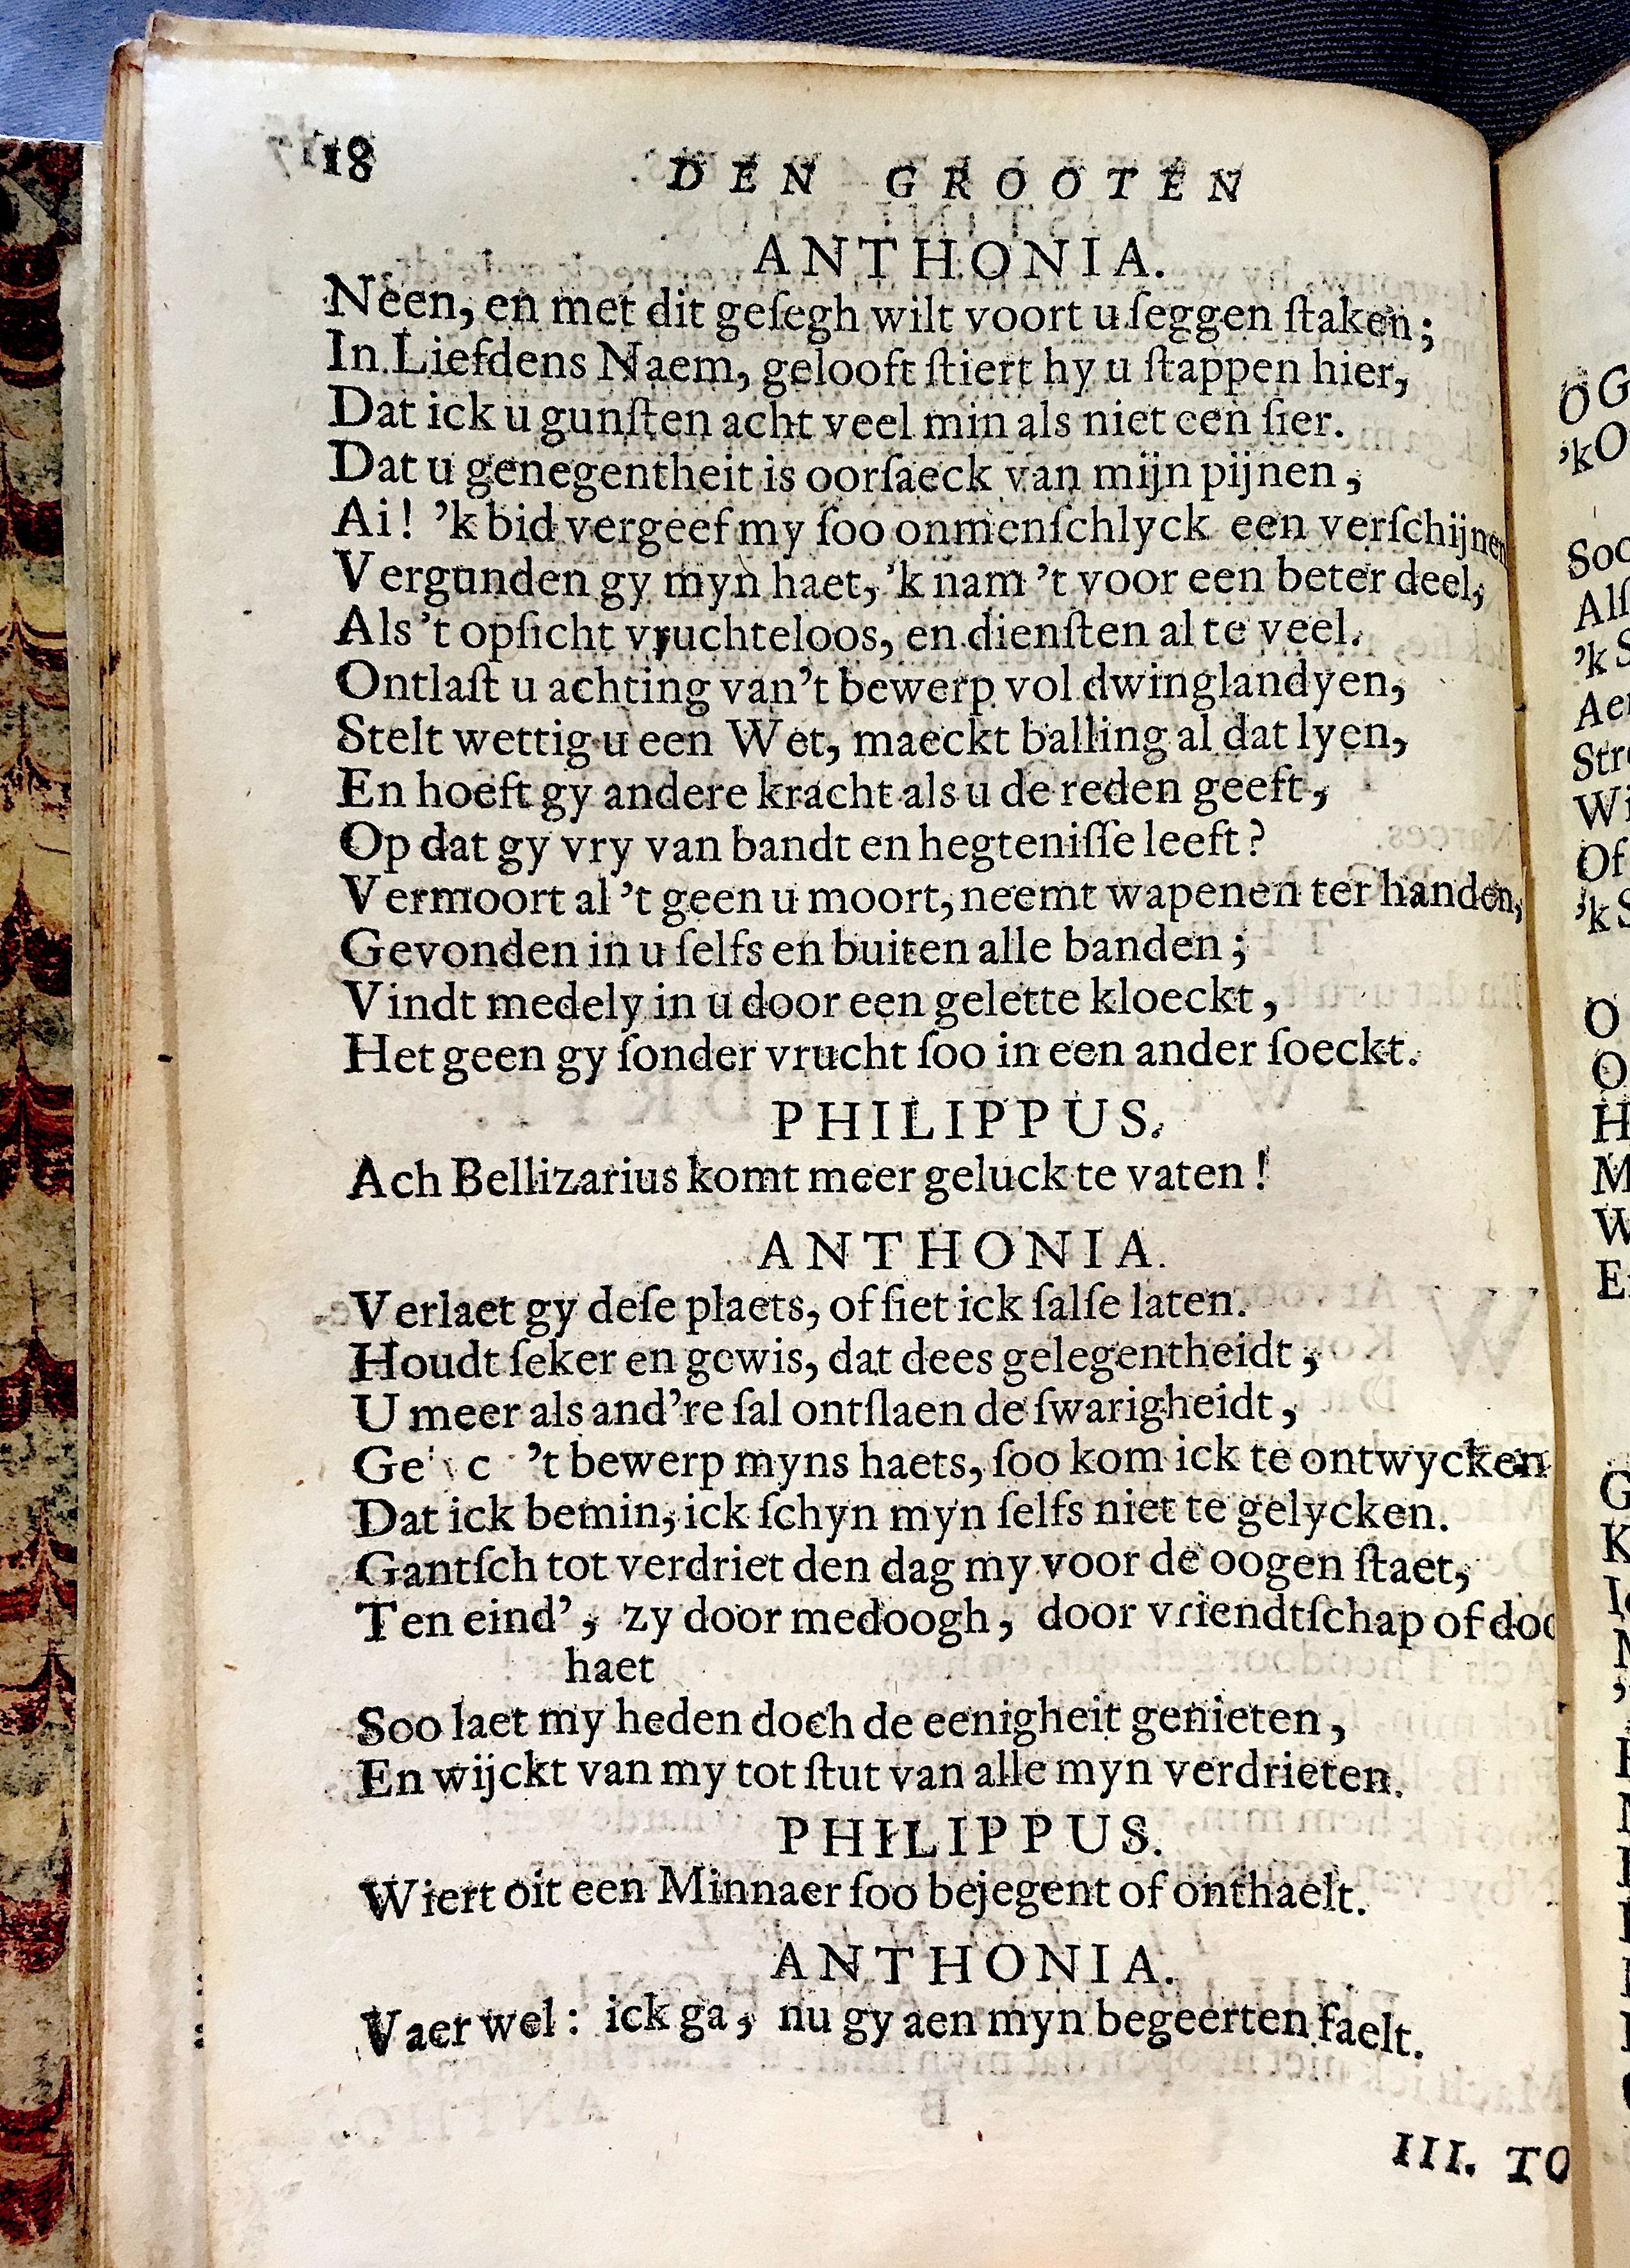 18 DEN GROOTEN
ANTHONIA.
Neen, en met dit geſegh wilt voort u ſeggen ſtaken;
In Liefdens Naem, gelooft ſtiert hy u ſtappen hier,
Dat ick u gunſten acht veel min als niet een ſier.
Dat u genegentheit is oorſaeck van mijn pijnen,
Ai! 'k bid vergeef my ſoo onmenſchlyck een verſchijnen
Vergunden gy myn haet, 'k nam 't voor een beter deel,
Als 't opſicht vruchteloos, en dienſten al te veel.
Ontlaſt u achting van 't bewerp vol dwinglandyen,
Stelt wettig u een Wet, maeckt balling al dat lyen,
En hoeft gy andere kracht als u de reden geeft,
Op dat gy vry van bandt en hegteniſſe leeft?
Vermoort al 't geen u moort, neemt wapenen ter handen,
Gevonden in u ſelfs en buiten alle banden;
Vindt medely in u door een gelette kloeckt,
Het geen gy ſonder vrucht ſoo in een ander ſoeckt.
PHILIPPUS.
Ach Bellizarius komt meer geluck te vaten!
ANTHONIA.
Verlaet gy deſe plaets, of ſiet ick ſalſe laten.
Houdt ſeker en gewis, dat dees gelegentheidt,
U meer als and're ſal ontſlaen de ſwarigheidt,
't bewerp myns haets, ſoo kom ick te ontwycken
Dat ick bemin, ick ſchyn myn ſelfs niet te gelycken.
Gantſch tot verdriet den dag my voor de oogen ſtaet,
Ten eind', zy door medoogh, door vriendtſchap of doo
haet
Soo laet my heden doch de eenigheit genieten,
En wijckt van my tot ſtut van alle myn verdrieten.
PHILIPPUS.
Wiert oit een Minnaer ſoo bejegent of onthaelt.
ANTHONIA.
Vaer wel: ick ga, nu gy aen myn begeerten faelt.
III. TO